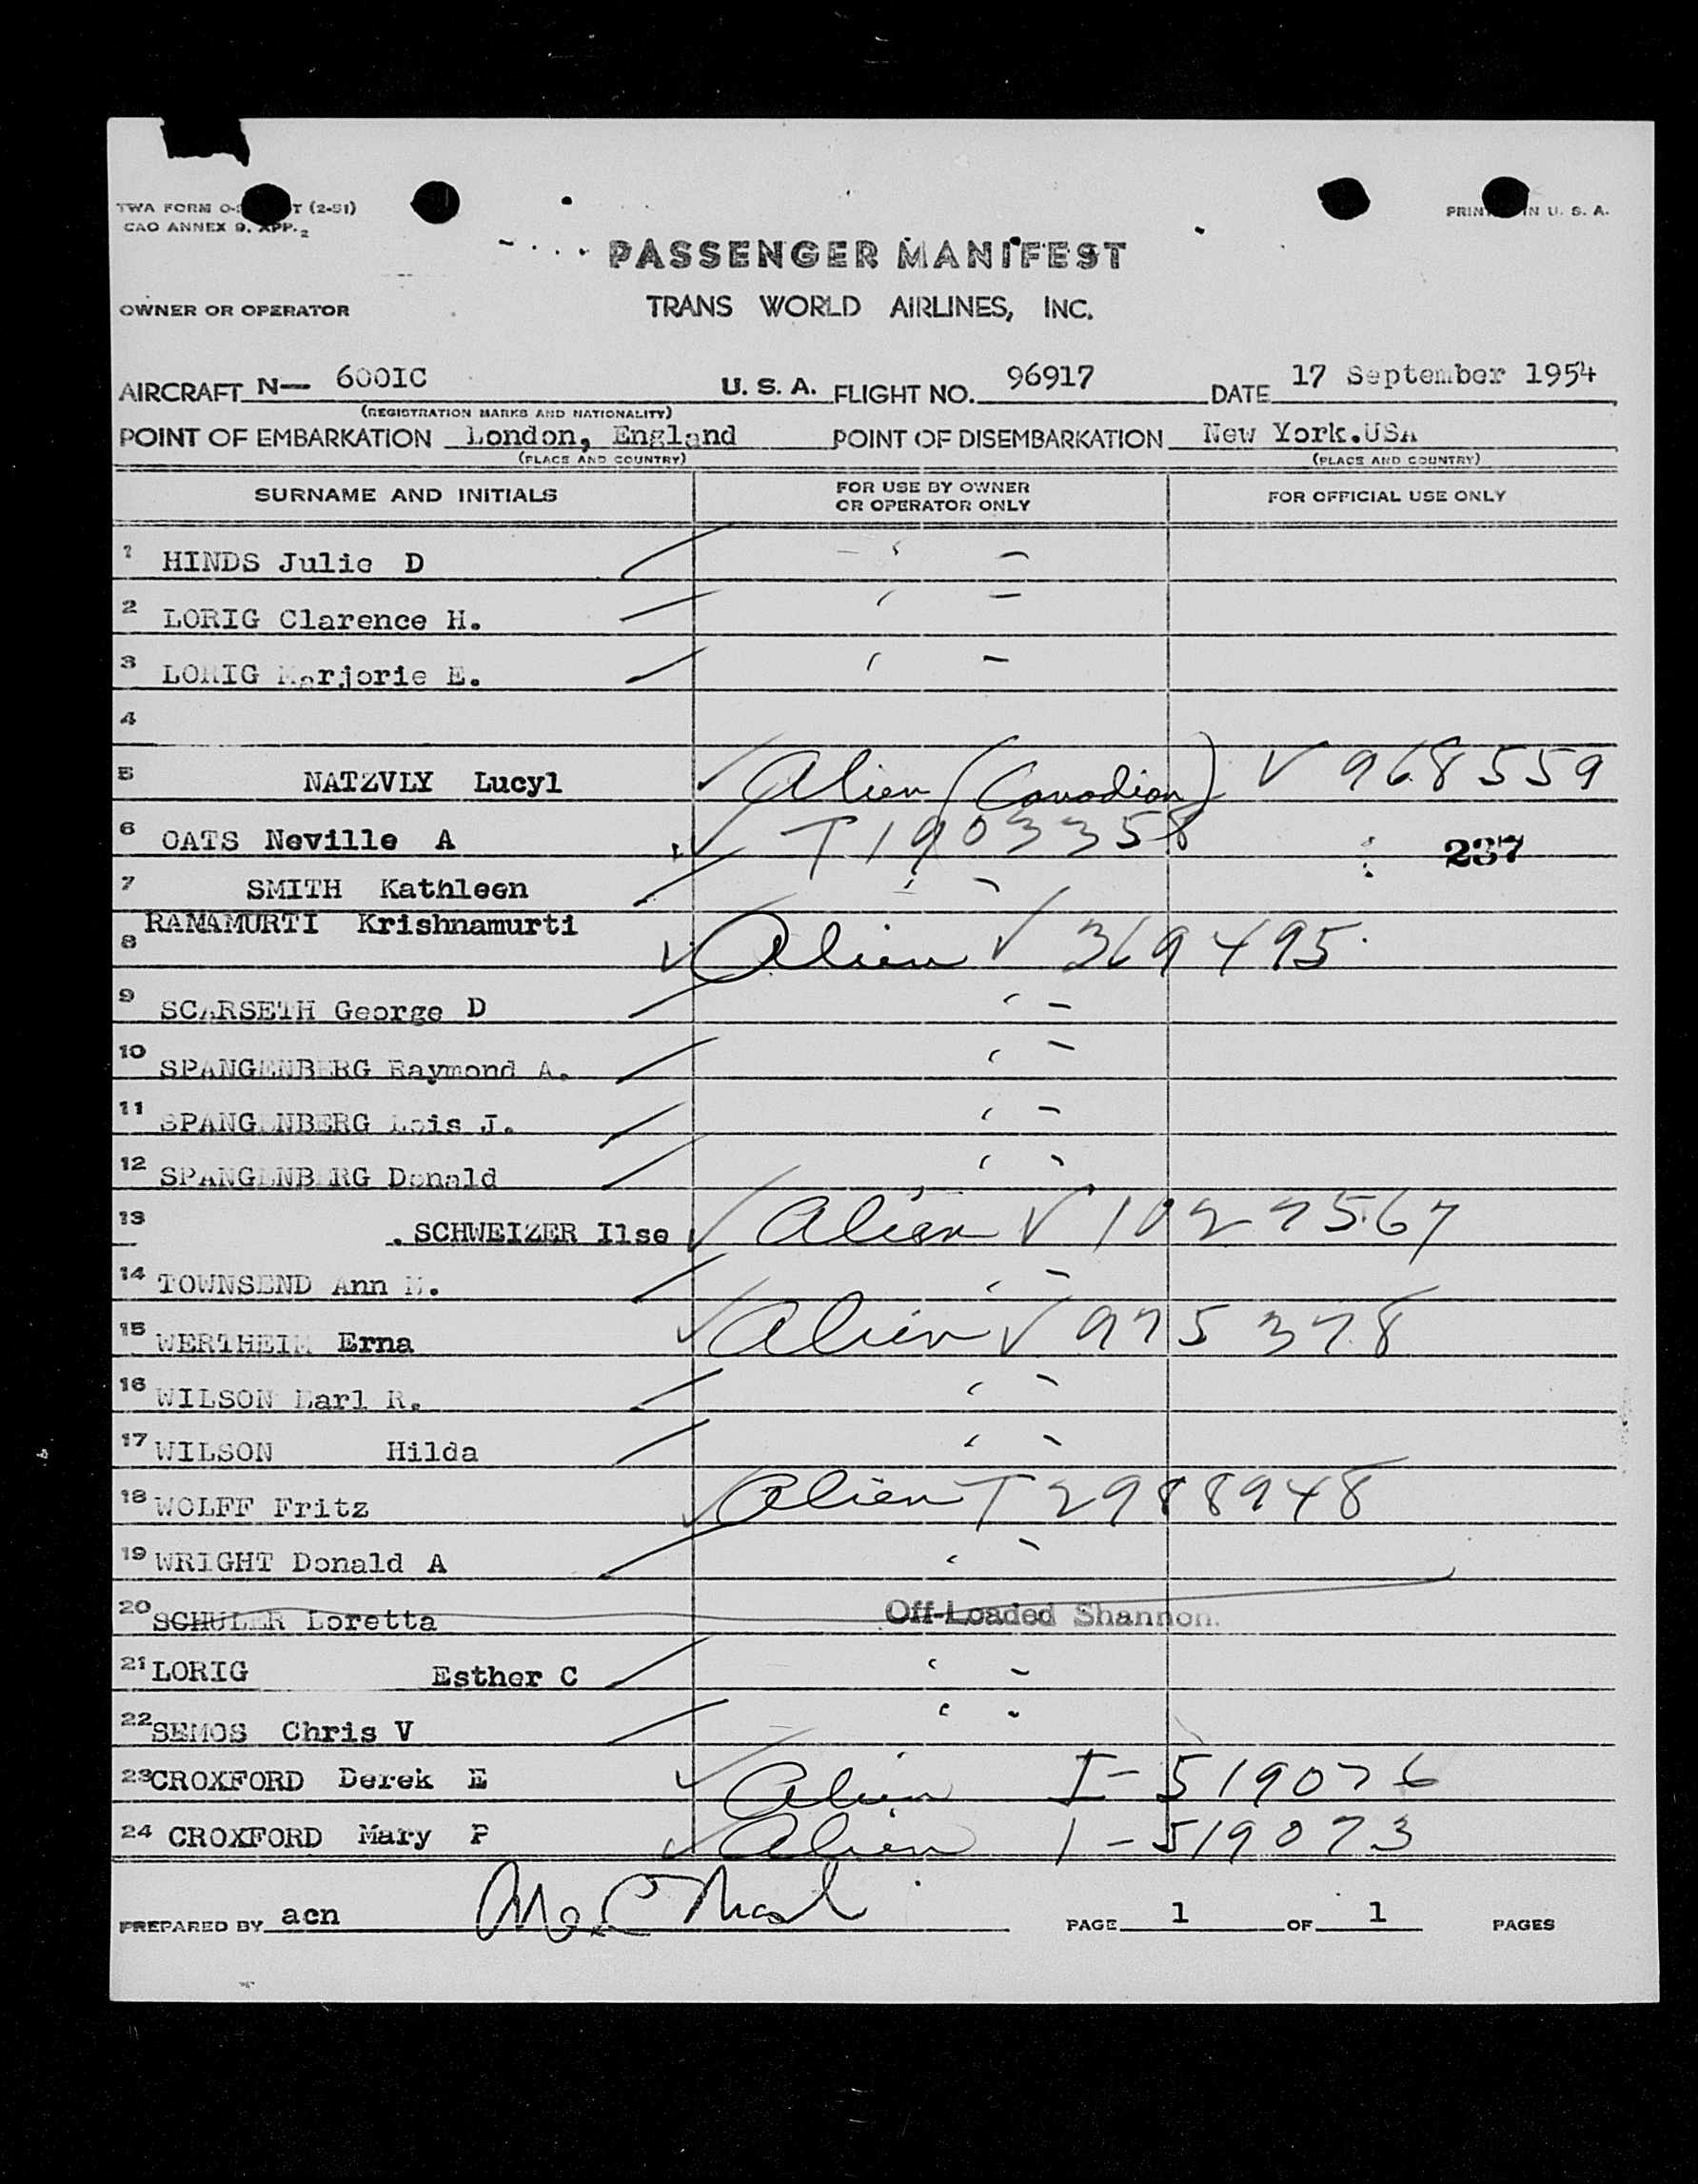 TWA FORM O- T (2-51)
CAO ANNEX 9, APP. 2
PRIN IN U. S. A.
PASSENGER MANIFEST
OWNER OR OPERATOR
TRANS WORLD AIRLINES, INC.
AIRCRAFT N— 6001C U. S. A. FLIGHT NO. 96917 DATE 17 September 1954
(REGISTRATION MARKS AND NATIONALITY)
POINT OF EMBARKATION London, England POINT OF DISEMBARKATION New York.USA
(PLACE AND COUNTRY) (PLACE AND COUNTRY)
SURNAME AND INITIALS FOR USE BY OWNER OR OPERATOR ONLY FOR OFFICIAL USE ONLY
1 HINDS Julie D
2 LORIG Clarence H.
3 LORIG Marjorie E.
4
5 NATZVLY Lucyl Alien (Canadian) V 968559
6 OATS Neville A T 1903358 237
7 SMITH Kathleen
8 RAMAMURTI Krishnamurti Alien V 369495
9 SCARSETH George D
10 SPANGENBERG Raymond A.
11 SPANGENBERG Lois J.
12 SPANGENBERG Donald
13 . SCHWEIZER Ilse Alien V 1027567
14 TOWNSEND Ann M.
15 WERTHEIM Erna Alien V 975378
16 WILSON Earl R.
17 WILSON Hilda
18 WOLFF Fritz Alien T 2988948
19 WRIGHT Donald A
20 SCHULER Loretta Off-Loaded Shannon.
21 LORIG Esther C
22 SEMOS Chris V
23 CROXFORD Derek E Alien I-519076
24 CROXFORD Mary P Alien I-519073
PREPARED BY acn PAGE 1 OF 1 PAGES